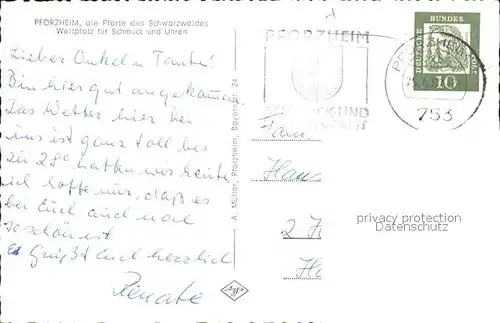 PFORZHEIM, die Pforte des Schwarzwaldes
Weltplatz für Schmuck und Uhren
Lieber Onkel u Tante!
Bin hier gut angekommen.
Das Wetter hier bei
uns ist ganz toll bis
zu 28° hatten wir heute,
ich hoffe nur, daß es
bei Euch auch noch
so schön ist
Es Grüßt Euch herzlich
Renate
A. Müller, Pforzheim, Bayernstr. 24
PFORZHEIM
SCHMUCK UND
753
DEUTSCHE BUNDESPOST
10
Fam
Han
2 H
privacy protection
Datenschutz